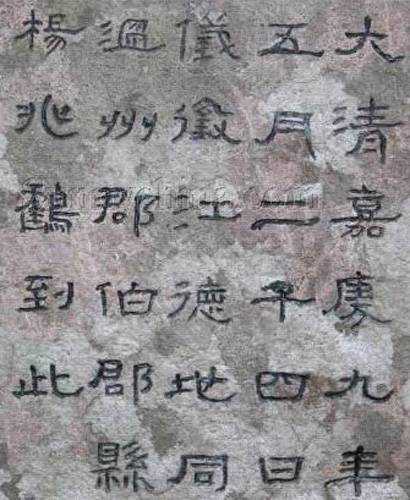 大清嘉慶九年
五月二十四日
儀徵江德地同
溫州郡伯郡縣
楊兆鶴到此